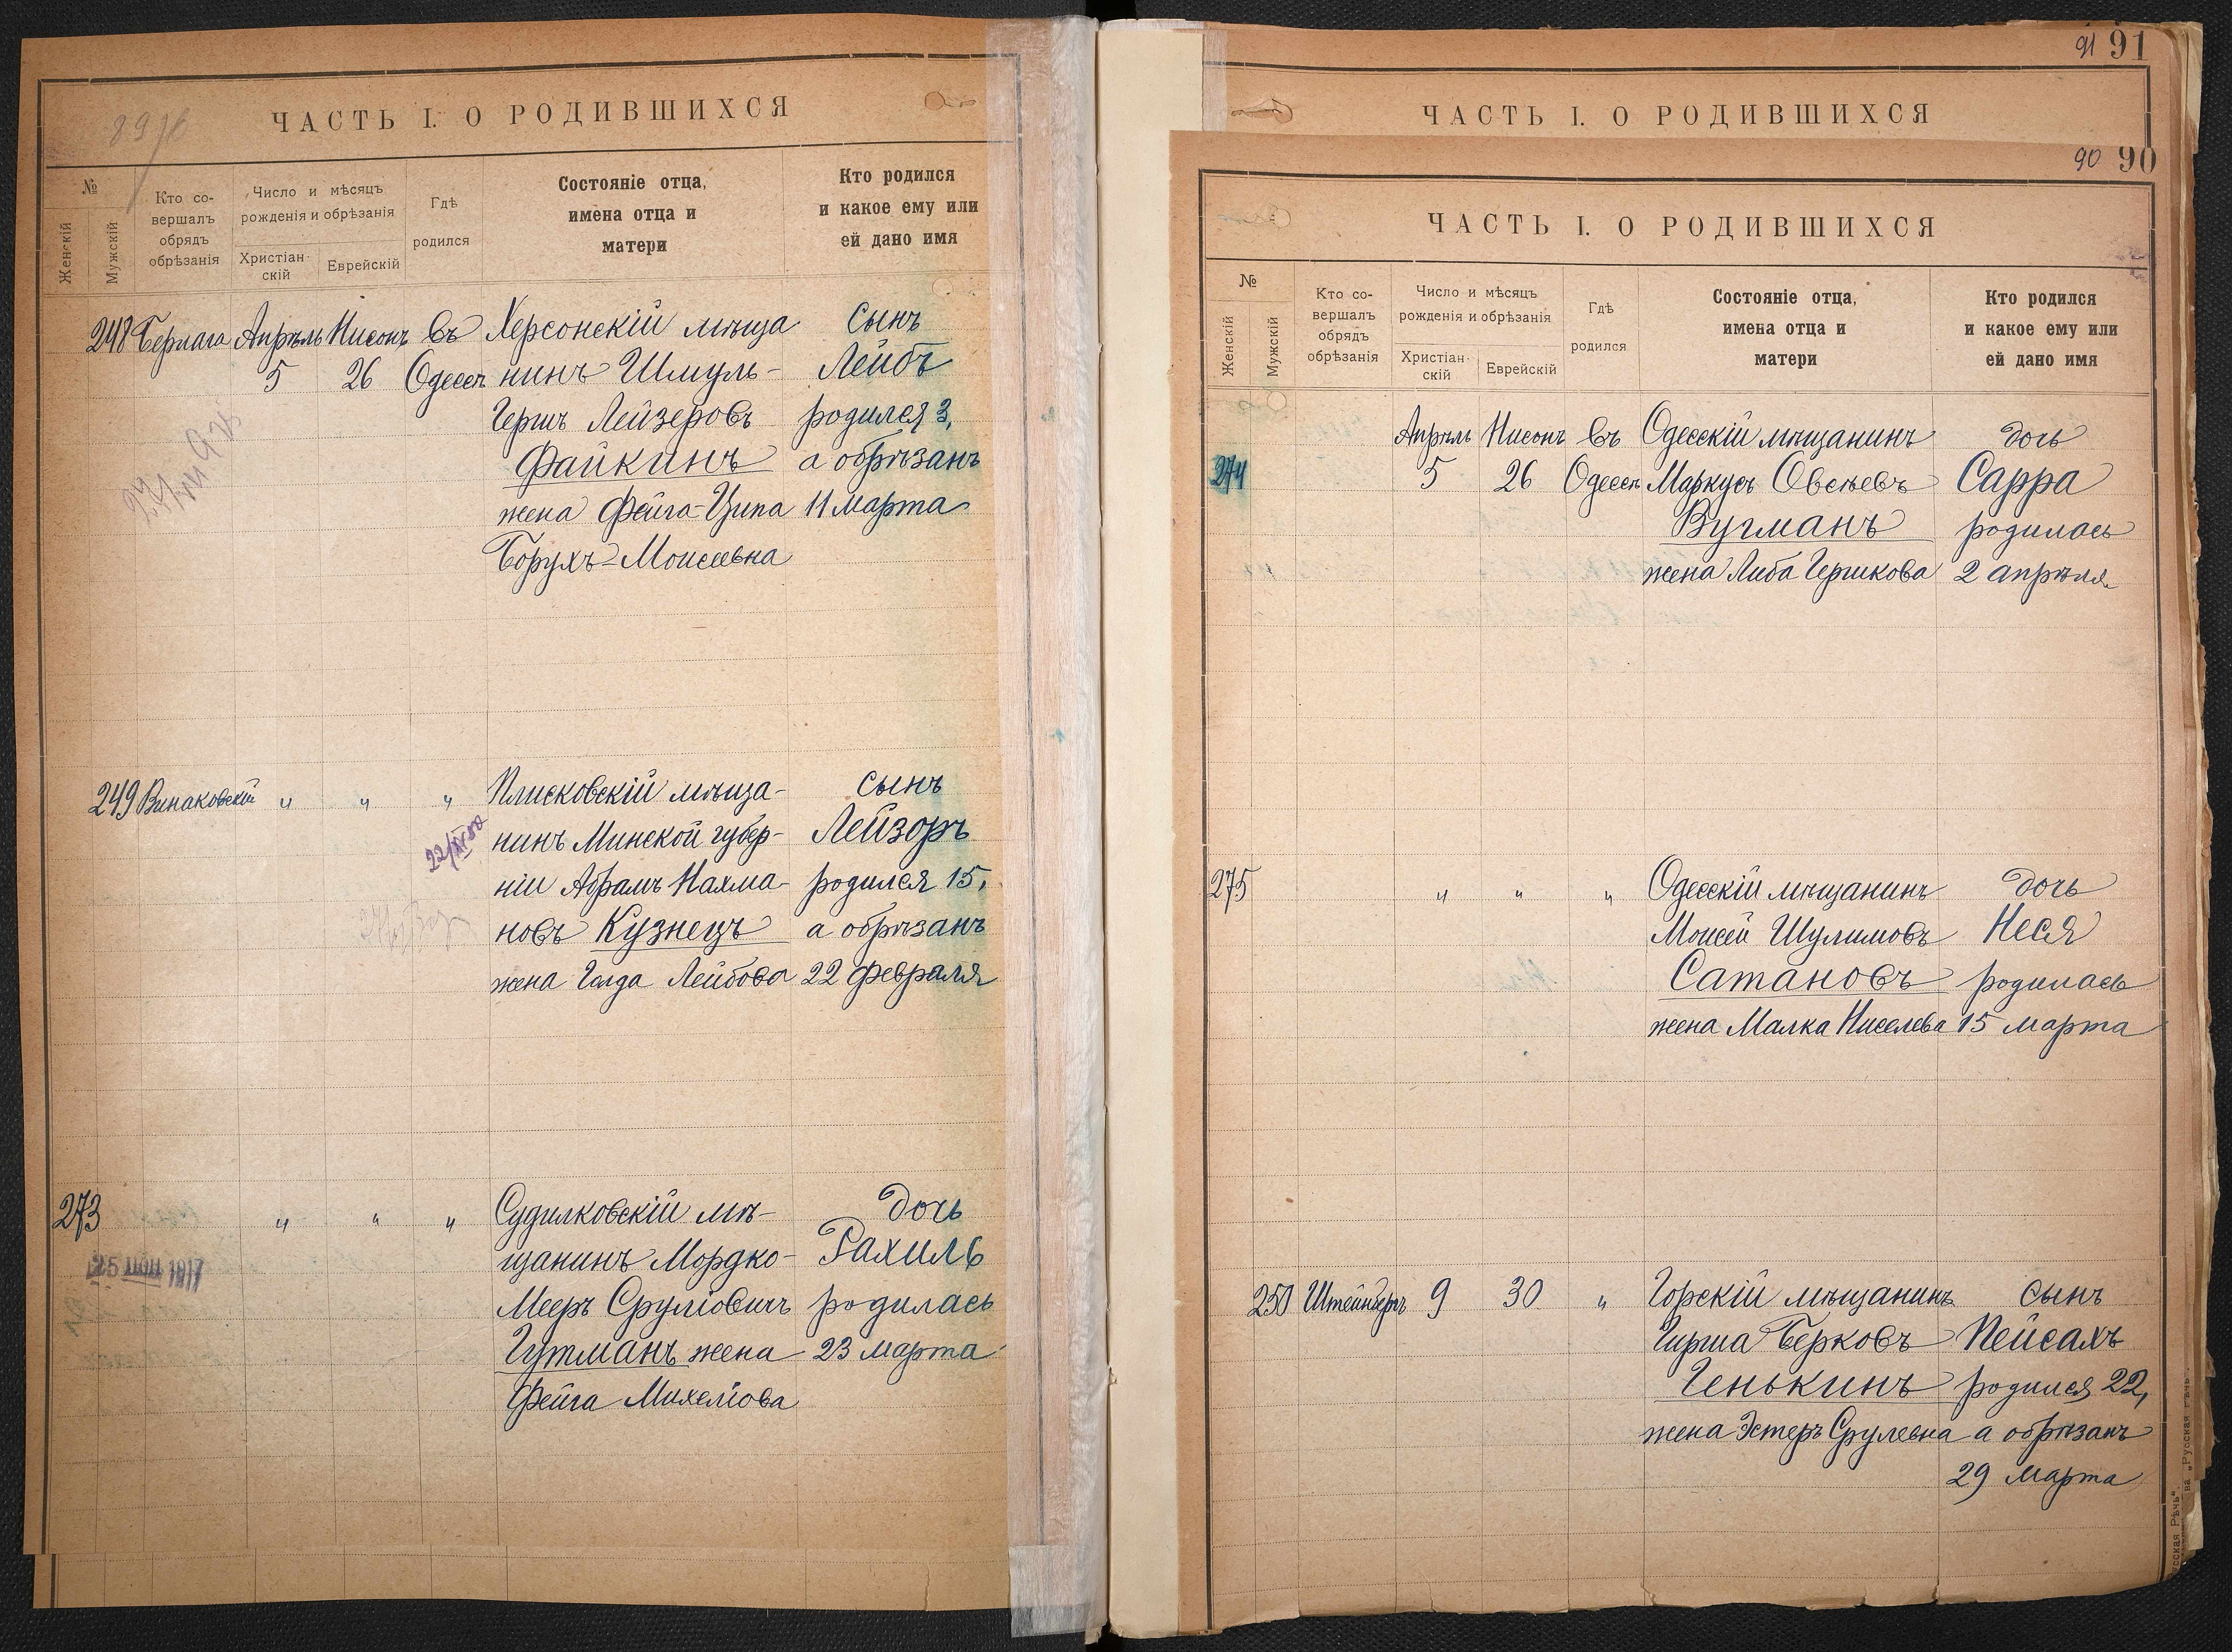 ЧАСТЬ I. О РОДИВШИХСЯ
№
Женскій
Мужскій
Кто со-
вершалъ
обрядъ
обрѣзанія
Число и мѣсяцъ
рожденія и обрѣзанія
Христіан-
скій
Еврейскій
Гдѣ
родился
Состояніе отца,
имена отца и
матери
Кто родился
и какое ему или
ей дано имя
248 Берлага Апрѣль Нисонъ въ Херсонскій мѣща сынъ
5 26 Одессѣ нинъ Шмуль- Лейбъ
Гершъ Лейзеровъ родился 3,
Файкинъ а обрѣзанъ
жена Фейга-Ципа 11 марта
Борухъ-Моисеевна
249 Винаковскій " " " Плисковскій мѣща- сынъ
нинъ Минской губер- Лейзоръ
ніи Абрамъ Нахма- родился 15,
новъ Кузнецъ а обрѣзанъ
жена Голда Лейбова 22 февраля
273 " " " Судилковскій мѣ- дочь
щанинъ Мордко- Рахиль
Мееръ Сруліовичъ родилась
Гутманъ жена 23 марта
Фейга Михеліова
1917
91 91
ЧАСТЬ I. О РОДИВШИХСЯ
90 90
ЧАСТЬ I. О РОДИВШИХСЯ
№
Женскій
Мужскій
Кто со-
вершалъ
обрядъ
обрѣзанія
Число и мѣсяцъ
рожденія и обрѣзанія
Христіан-
скій
Еврейскій
Гдѣ
родился
Состояніе отца,
имена отца и
матери
Кто родился
и какое ему или
ей дано имя
Апрѣль Нисонъ въ Одесскій мѣщанинъ дочь
274 5 26 Одессѣ Маркусъ Овсѣевъ Сарра
Вугманъ родилась
жена Либа Гершкова 2 апрѣля
275 " " " Одесскій мѣщанинъ дочь
Моисей Шулимовъ Неся
Сатановъ родилась
жена Малка Киселева 15 марта
250 Штейнбергъ 9 30 " Горскій мѣщанинъ сынъ
Гирша Берковъ Пейсахъ
Генькинъ родился 22,
жена Эстеръ Срулевна а обрѣзанъ
29 марта